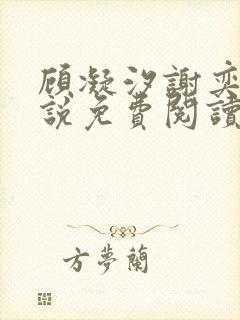 顾凝汐謝奕
說免費閱讀
方夢蘭